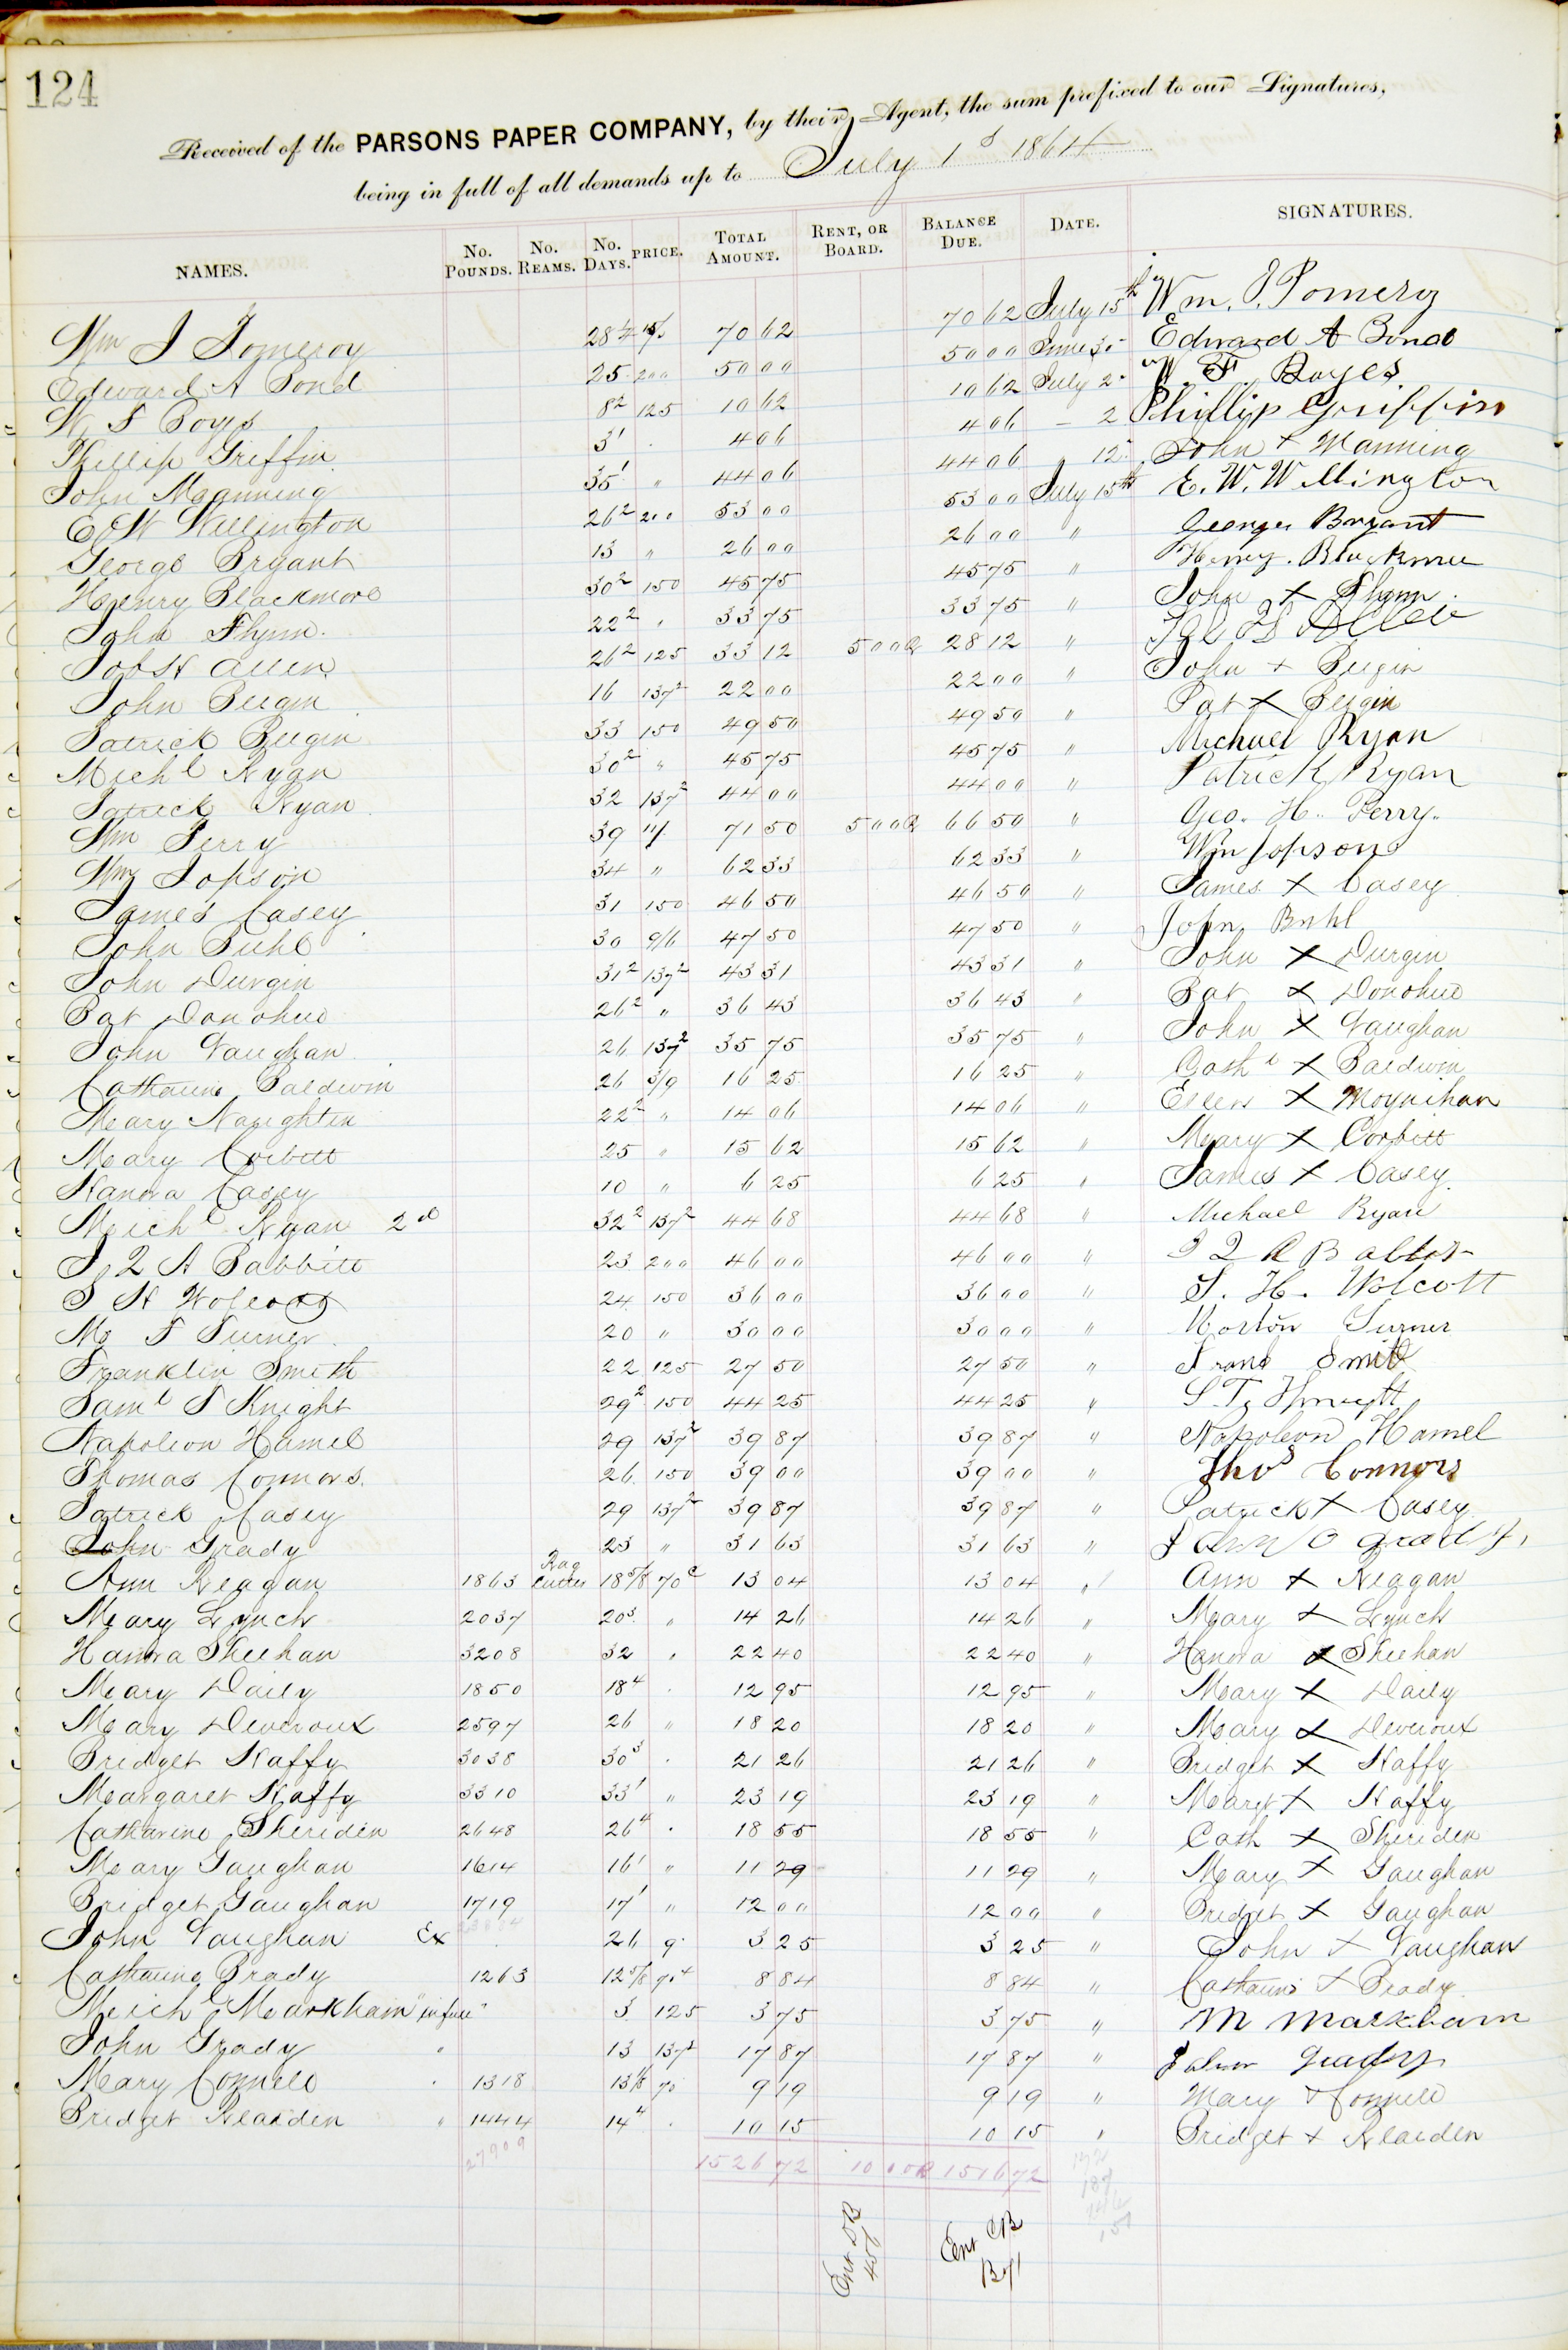 124
Received of the PARSONS PAPER COMPANY, by their Agent, the sum prefixed to our Signatures,
being in full of all demands up to July 1st 1864
NAMES. No. POUNDS. No. REAMS. No. DAYS. PRICE. TOTAL AMOUNT. RENT, OR BOARD. BALANCE DUE. DATE. SIGNATURES.
Wm J Pomeroy 28¼ 15/ 70 62 70 62 July 15th Wm. J. Pomeroy
Edward A Bond 25 200 50 00 50 00 June 30 Edward A Bond
W F Boyes 8² 125 10 62 10 62 July 2 W. F. Boyes
Phillip Griffin 3¹ " 4 06 4 06 – 2 Phillip Griffin
John Manning 35¹ " 44 06 44 06 " 12 John + Manning
E W Wellington 26² 200 53 00 53 00 July 15th E. W. Wellington
George Bryant 13 " 26 00 26 00 " George Bryant
Henry Blackmore 30² 150 45 75 45 75 " Henry Blackmer
John Flynn 22² " 33 75 33 75 " John X Flynn
Job H Allen 26² 125 33 12 5 00 R 28 12 " Job H Allen
John Bergin 16 137² 22 00 22 00 " John + Bergin
Patrick Bergin 33 150 49 50 49 50 " Pat X Bergin
Michl Ryan 30² " 45 75 45 75 " Michael Ryan
Patrick Ryan 32 137² 44 00 44 00 " Patrick Ryan
Wm Perry 39 11/ 71 50 5 00 R 66 50 " Geo. H. Perry
Wm Jopson 34 " 62 33 62 33 " Wm Jopson
James Casey 31 150 46 50 46 50 " James X Casey
John Buhl 30 9/6 47 50 47 50 " John Buhl
John Durgin 31² 137² 43 31 43 31 " John X Durgin
Pat Donohue 26² " 36 43 36 43 " Pat X Donohue
John Vaughan 26 137² 35 75 35 75 " John X Vaughan
Catharine Baldwin 26 3/9 16 25 16 25 " Cath X Baldwin
Mary Naughten 22² " 14 06 14 06 " Ellen X Moynihan
Mary Corbett 25 " 15 62 15 62 " Mary X Corbett
Hanora Casey 10 " 6 25 6 25 " James X Casey
Michl Ryan 2d 32² 137² 44 68 44 68 " Michael Ryan
J Q A Babbitt 23 200 46 00 46 00 " J Q A Babbit
S H Wolcott 24 150 36 00 36 00 " S. H. Wolcott
M F Turner 20 " 30 00 30 00 " Morton Turner
Franklin Smith 22 125 27 50 27 50 " Frank Smith
Saml T Knight 29² 150 44 25 44 25 " S. T. Knight
Napoleon Hamel 29 137² 39 87 39 87 " Napoleon Hamel
Thomas Connors 26 150 39 00 39 00 " Thos Connors
Patrick Casey 29 137² 39 87 39 87 " Patrick X Casey
John Grady 23 " 31 63 31 63 " O Grady
Ann Reagan 1863 Rag Cutters 18⅝ 70c 13 04 13 04 " Ann X Reagan
Mary Lynch 2037 20³ " 14 26 14 26 " Mary X Lynch
Hanora Sheehan 3208 32 " 22 40 22 40 " Hanora X Sheehan
Mary Daily 1850 18⁴ " 12 95 12 95 " Mary X Daily
Mary Deveroux 2597 26 " 18 20 18 20 " Mary X Deveroux
Bridget Haffy 3038 30³ " 21 26 21 26 " Bridget X Haffy
Margaret Haffy 3310 33¹ " 23 19 23 19 " Margt X Haffy
Catharine Sheriden 2648 26⁴ " 18 55 18 55 " Cath X Sheriden
Mary Gaughan 1614 16¹ " 11 29 11 29 " Mary X Gaughan
Bridget Gaughan 1719 17¹ " 12 00 12 00 " Bridget X Gaughan
John Vaughan Ex 26 9 3 25 3 25 " John X Vaughan
Catharine Brady 1263 12⅝ 70 8 84 8 84 " Catharine X Brady
Michl Markham "in full" 3 125 3 75 3 75 " M Markham
John Grady " 13 137² 17 87 17 87 " John Grady
Mary Connell " 1318 13⅛ 70 9 19 9 19 " Mary X Connell
Bridget Rearden " 1444 14⁴ " 10 15 10 15 " Bridget + Rearden
27909 1526 72 10 00 R 1516 72
Ent CB